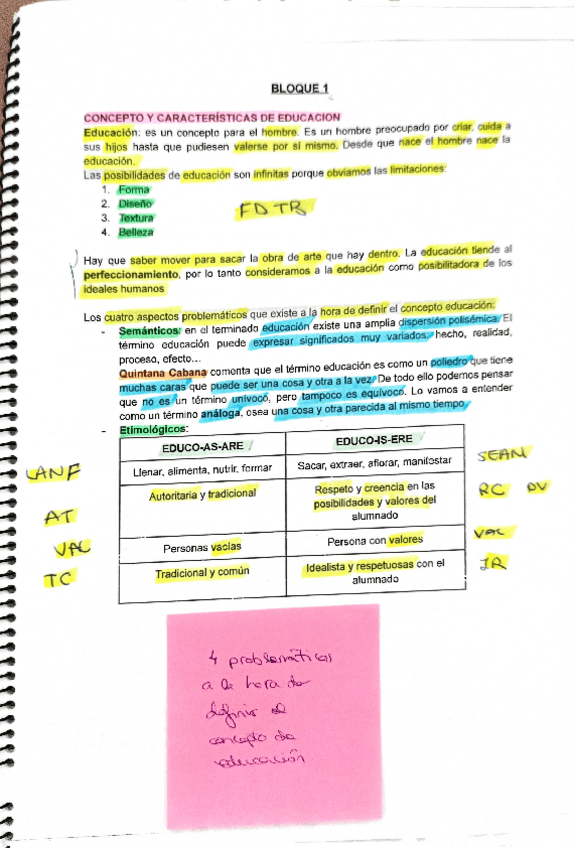 BLOQUE 1
CONCEPTO Y CARACTERÍSTICAS DE EDUCACION
Educación: es un concepto para el hombre. Es un hombre preocupado por criar, cuida a
sus hijos hasta que pudiesen valerse por sí mismo. Desde que nace el hombre nace la
educación.
Las posibilidades de educación son infinitas porque obviamos las limitaciones:
1. Forma
2. Diseño
3. Textura
4. Belleza
FDTB
Hay que saber mover para sacar la obra de arte que hay dentro. La educación tiende al
perfeccionamiento, por lo tanto consideramos a la educación como posibilitadora de los
ideales humanos
Los cuatro aspectos problemáticos que existe a la hora de definir el concepto educación:
- Semánticos: en el terminado educación existe una amplia dispersión polisémica. El
término educación puede expresar significados muy variados, hecho, realidad,
proceso, efecto...
Quintana Cabana comenta que el término educación es como un poliedro que tiene
muchas caras que puede ser una cosa y otra a la vez. De todo ello podemos pensar
que no es un término unívoco, pero tampoco es equívoco. Lo vamos a entender
como un término análoga, osea una cosa y otra parecida al mismo tiempo.
- Etimológicos:
EDUCO-AS-ARE EDUCO-IS-ERE
LANF Llenar, alimenta, nutrir, formar Sacar, extraer, aflorar, manifestar SEAM
AT Autoritaria y tradicional Respeto y creencia en las RC PV
posibilidades y valores del
alumnado
VAC Personas vacías Persona con valores VAL
TC Tradicional y común Idealista y respetuosas con el IR
alumnado
4 problemáticas
a la hora de
definir el
concepto de
educación